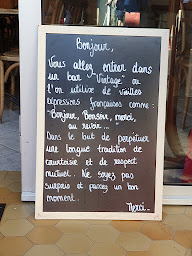 Bonjour,
Vous allez entrer dans
un bar "Vintage" où
l'on utilise de vieilles
expressions françaises comme :
"Bonjour, Bonsoir, merci,
au revoir...
Dans le but de perpétuer
une longue tradition de
courtoisie et de respect
mutuel. Ne soyez pas
surpris et passez un bon
moment.
Merci.